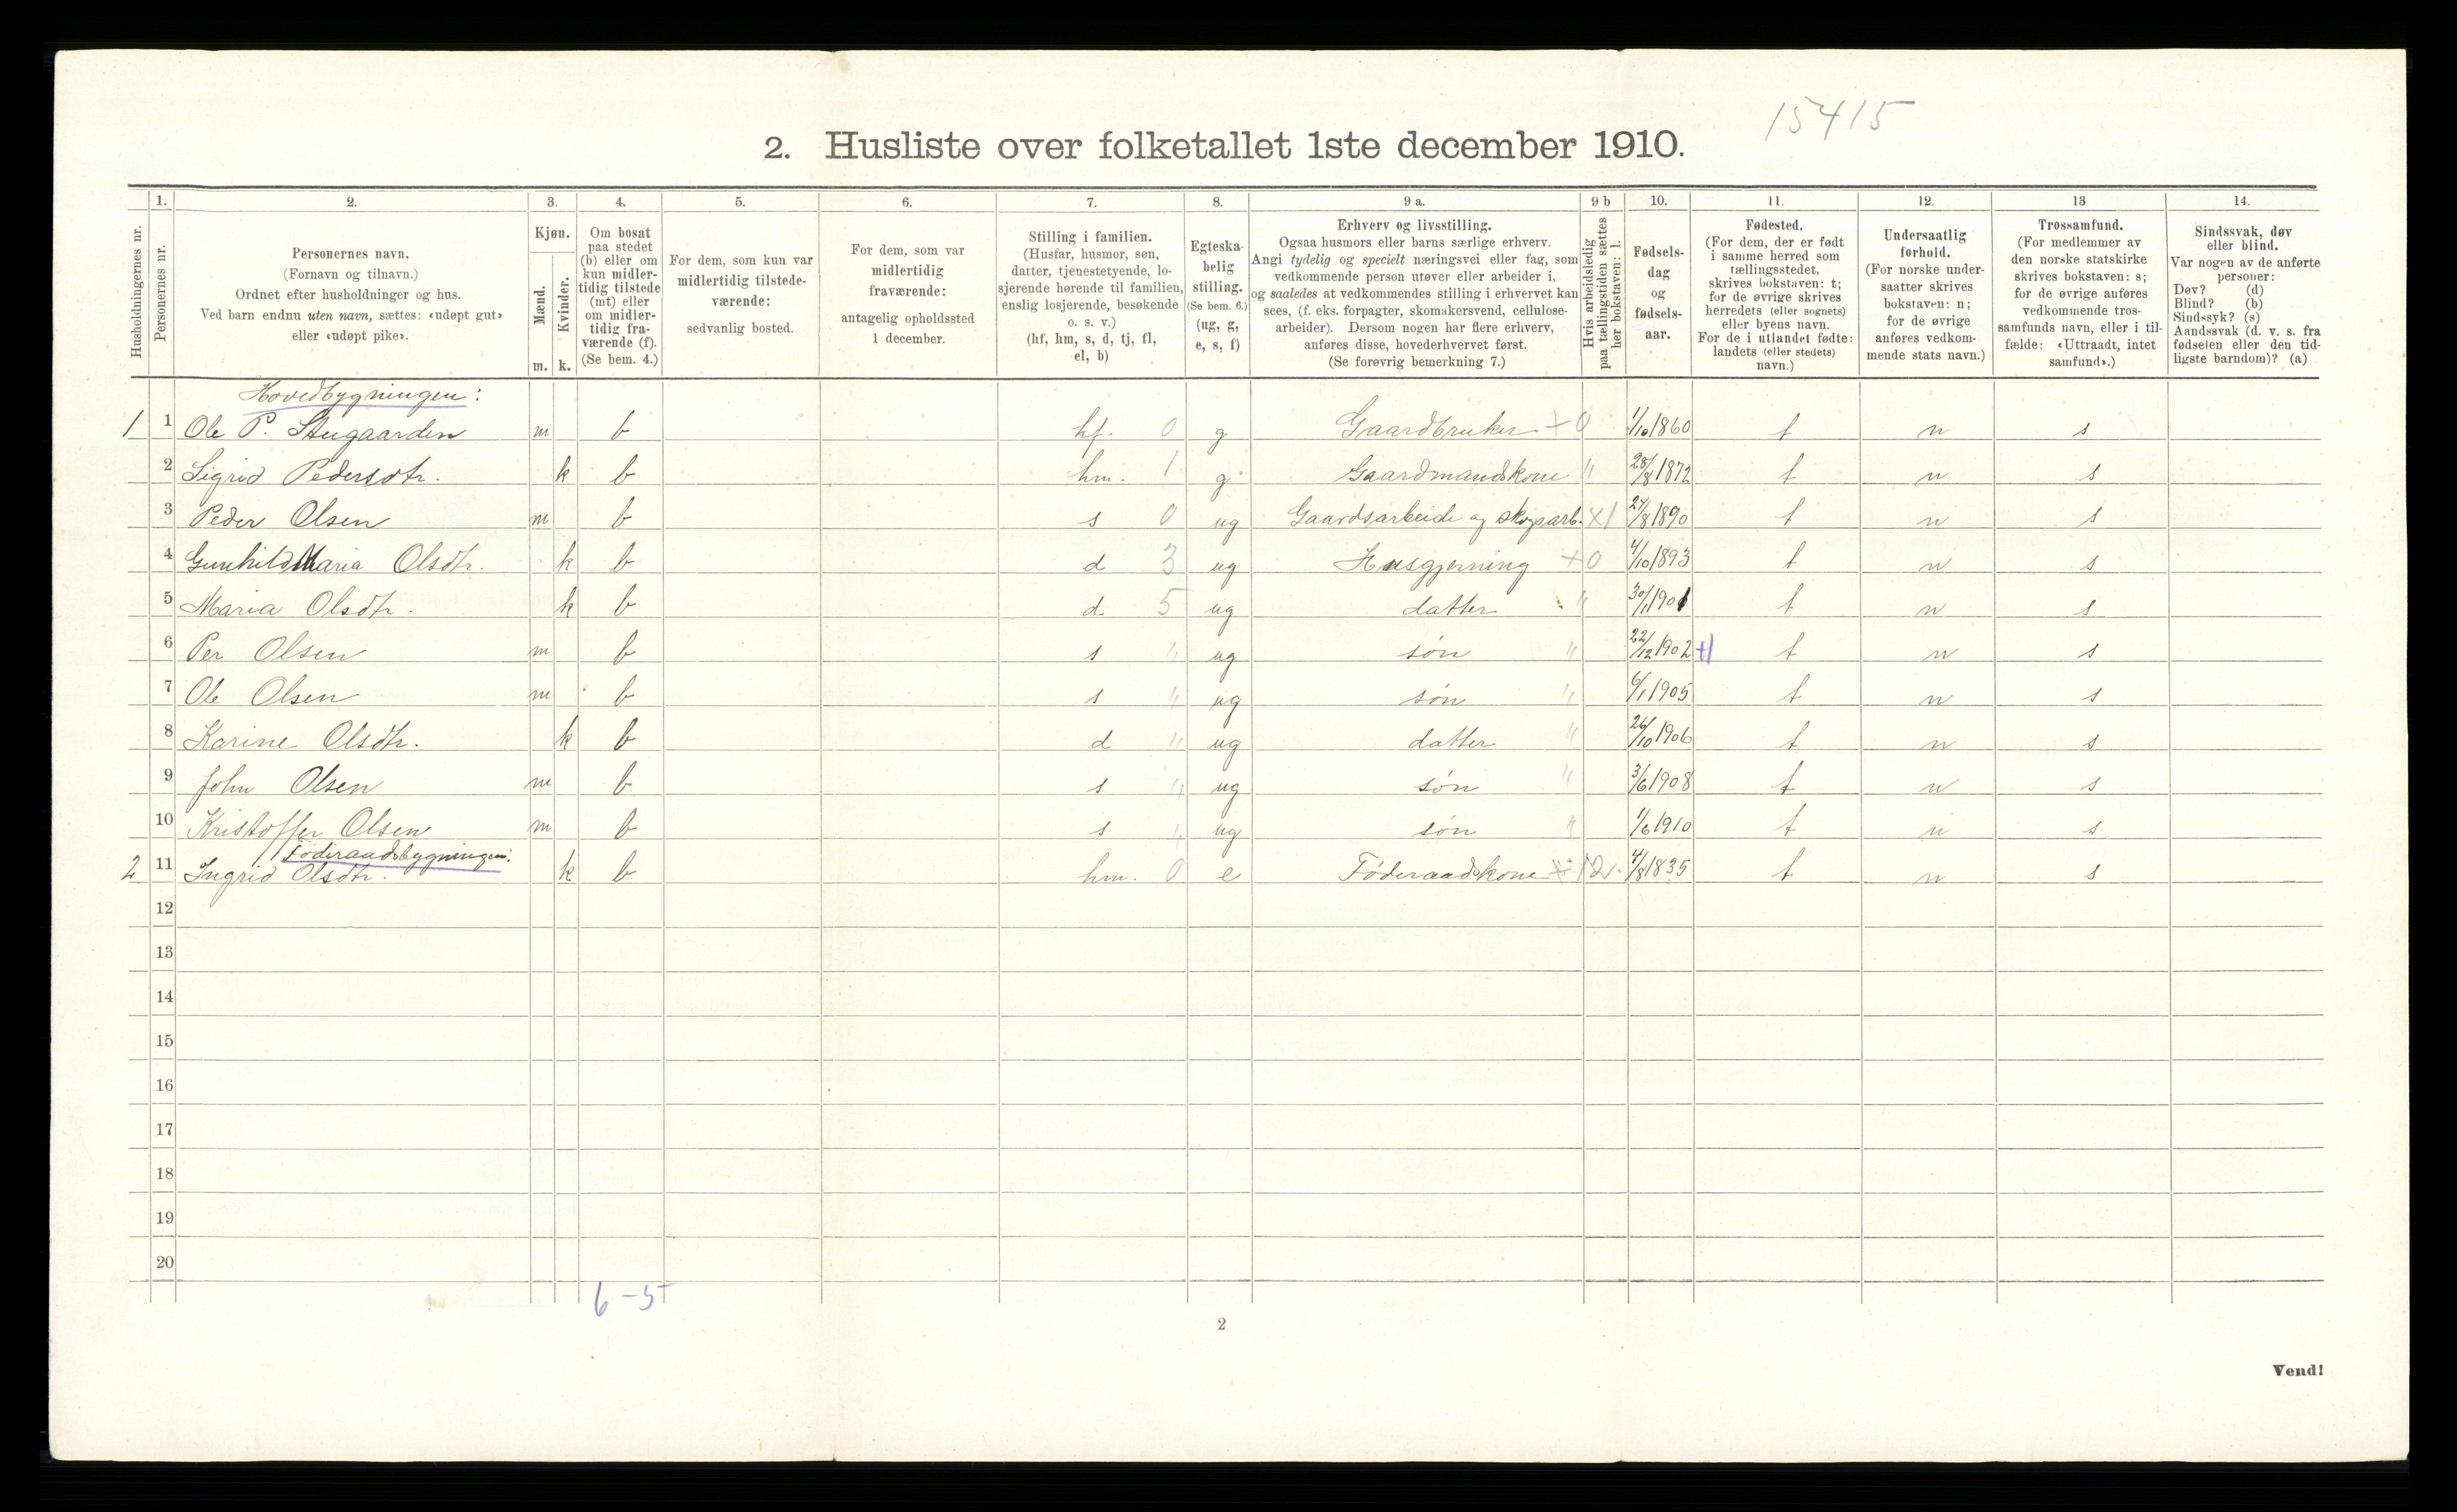 15415
2. Husliste over folketallet 1ste december 1910.
Husholdningernes nr.
1.
Personernes nr.
2.
Personernes navn.
(Fornavn og tilnavn.)
Ordnet efter husholdninger og hus.
Ved barn endnu uten navn, sættes: «udøpt gut»
eller «udøpt pike».
3.
Kjøn.
Mænd.
Kvinder.
m. k.
4.
Om bosat
paa stedet
(b) eller om
kun midler-
tidig tilstede
(mt) eller
om midler-
tidig fra-
værende (f).
(Se bem. 4.)
5.
For dem, som kun var
midlertidig tilstede-
værende:
sedvanlig bosted.
6.
For dem, som var
midlertidig
fraværende:
antagelig opholdssted
1 december.
7.
Stilling i familien.
(Husfar, husmor, søn,
datter, tjenestetyende, lo-
sjerende hørende til familien,
enslig losjerende, besøkende
o. s. v.)
(hf, hm, s, d, tj, fl,
el, b)
8.
Egteska-
belig
stilling.
(Se bem. 6.)
(ug, g,
e, s, f)
9 a.
Erhverv og livsstilling.
Ogsaa husmors eller barns særlige erhverv.
Angi tydelig og specielt næringsvei eller fag, som
vedkommende person utøver eller arbeider i,
og saaledes at vedkommendes stilling i erhvervet kan
sees, (f. eks. forpagter, skomakersvend, cellulose-
arbeider). Dersom nogen har flere erhverv,
anføres disse, hovederhvervet først.
(Se forøvrig bemerkning 7.)
9 b
Hvis arbeidsledig
paa tællingstiden sættes
her bokstaven: l.
10.
Fødsels-
dag
og
fødsels-
aar.
11.
Fødested.
(For dem, der er født
i samme herred som
tællingsstedet,
skrives bokstaven: t;
for de øvrige skrives
herredets (eller sognets)
eller byens navn.
For de i utlandet fødte:
landets (eller stedets)
navn.)
12.
Undersaatlig
forhold.
(For norske under-
saatter skrives
bokstaven: n;
for de øvrige
anføres vedkom-
mende stats navn.)
13
Trossamfund.
(For medlemmer av
den norske statskirke
skrives bokstaven: s;
for de øvrige anføres
vedkommende tros-
samfunds navn, eller i til-
fælde: «Uttraadt, intet
samfund».)
14.
Sindssvak, døv
eller blind.
Var nogen av de anførte
personer:
Døv? (d)
Blind? (b)
Sindssyk? (s)
Aandssvak (d. v. s. fra
fødselen eller den tid-
ligste barndom)? (a)
Hovedbygningen:
1 1 Ole P. Stugaarden m b hf. 0 g Gaardbruker + 0 1/10 1860 t n s
2 Sigrid Pedersdtr. k b hm. 1 g Gaardmandskone " 28/8 1872 t n s
3 Peder Olsen m b s 0 ug Gaardsarbeide og skogsarb. X 1 27/8 1890 t n s
4 Gunhild Maria Olsdtr. k b d 3 ug Husgjerning + 0 4/10 1893 t n s
5 Maria Olsdtr. k b d 5 ug datter " 30/1 1901 t n s
6 Per Olsen m b s " ug søn " 22/12 1902 +1 t n s
7 Ole Olsen m b s " ug søn " 6/1 1905 t n s
8 Karine Olsdtr. k b d " ug datter " 26/10 1906 t n s
9 John Olsen m b s " ug søn " 3/6 1908 t n s
10 Kristoffer Olsen m b s " ug søn " 1/6 1910 t n s
Føderaadsbygningen:
2 11 Ingrid Olsdtr. k b hm. 0 e Føderaadskone 12. 4/8 1835 t n s
12
13
14
15
16
17
18
19
20
6 - 5
2
Vend!